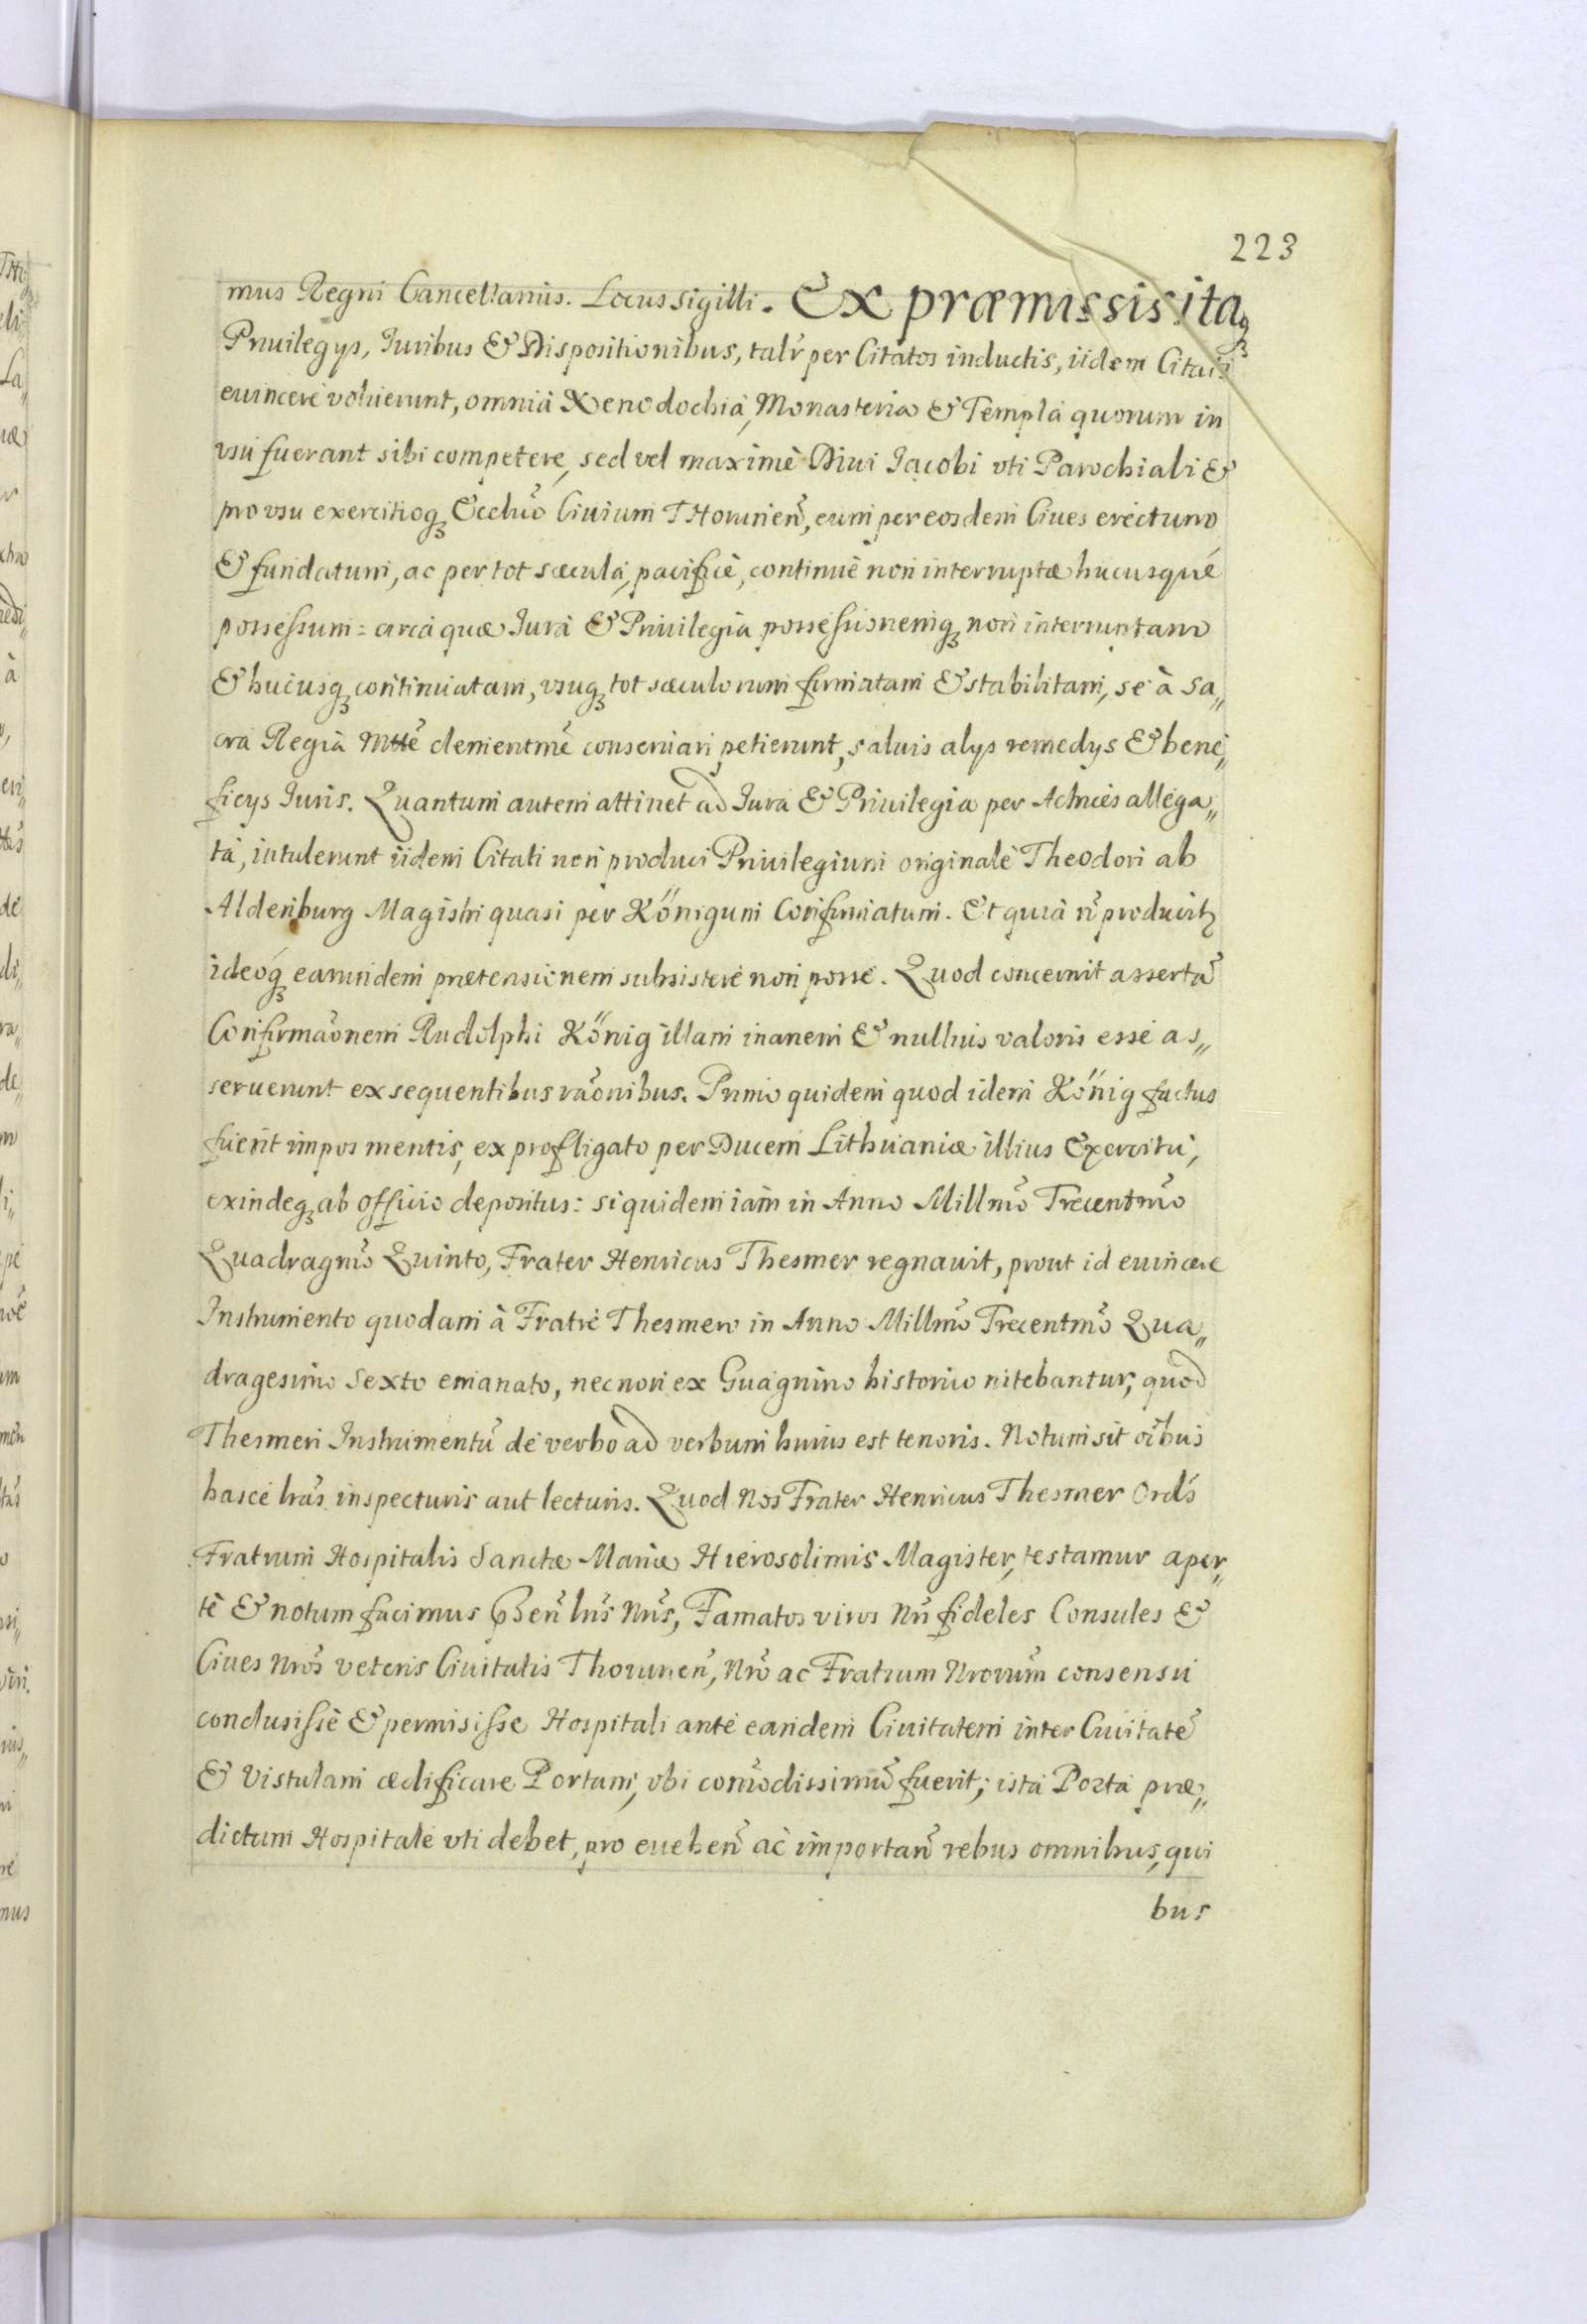 223
mus Regni Cancellarius. Locus sigilli. Ex præmissis itaq₃
Priuilegys, Iuribus & Dispositionibus, talr̃ per Citatos inductis, iidem Citati
euincere voluerunt, omnia Xenodochia, Monasteria & Templa quorum in
vsu fuerant sibi competere, sed vel maximè Diui Iacobi vti Parochiali &
pro vsu exercitioq₃ Eccluõ Ciuium THoruneñ, eum per eosdem Ciues erectum
& fundatum, ac per tot sæcula, pacificè, continuè non interruptæ hucusque
possessum: circa quæ Iura & Priuilegia possessionemq₃ non interruptam
& hucusq₃ continuatam, vsuq₃ tot sæculorum firmatam & stabilitam, se à Sa„
cra Regia Mttẽ clementmẽ conseruari petierunt, saluis alys remedys & bene„
ficys Iuris. Quantum autem attinet ad Iura & Priuilegia per Actrices allega„
ta, intulerunt iidem Citati non produci Priuilegium originale Theodori ab
Aldenburg Magistri quasi per Königum Confirmatum. Et quia ñ producitr
ideoq₃ earundem prætensionem subsistere non posse. Quod concernit assertã
Confirmaõnem Rudolphi König illam inanem & nullius valoris esse as„
seruerunt ex sequentibus raõnibus. Primo quidem quod idem König factus
fuerit impos mentis, ex profligato per Ducem Lithuaniæ illius Exercitu,
exindeq₃ ab officio depositus: siquidem iam in Anno Millmõ Trecentmõ
Quadragmõ Quinto, Frater Henricus Thesmer regnauit, prout id euincere
Instrumento quodam à Fratre Thesmero in Anno Millmõ Trecentmõ Qua„
dragesimo Sexto emanato, necnon ex Guagnino historico nitebantur, quod
Thesmeri Instrumentũ de verbo ad verbum huius est tenoris. Notum sit oĩbus
hasce lrãs inspecturis aut lecturis. Quod Nos Frater Henricus Thesmer Ordĩs
Fratrum Hospitalis Sanctæ Mariæ Hierosolimis Magister, testamur aper„
tè & notum facimus Pñseñ lrĩs Nrĩs, Famatos viros Nrĩ fideles Consules &
Ciues Nrõs veteris Ciuitatis Thoruneñ, Nrõ ac Fratrum Nrorũm consensu
conclusisse & permisisse Hospitali ante eandem Ciuitatem inter Ciuitatẽ
& Vistulam ædificare Portam, vbi com̃odissimũ fuerit; ista Porta præ„
dictum Hospitale vti debet, pro eueheñ ac importañ rebus omnibus, qui
bus